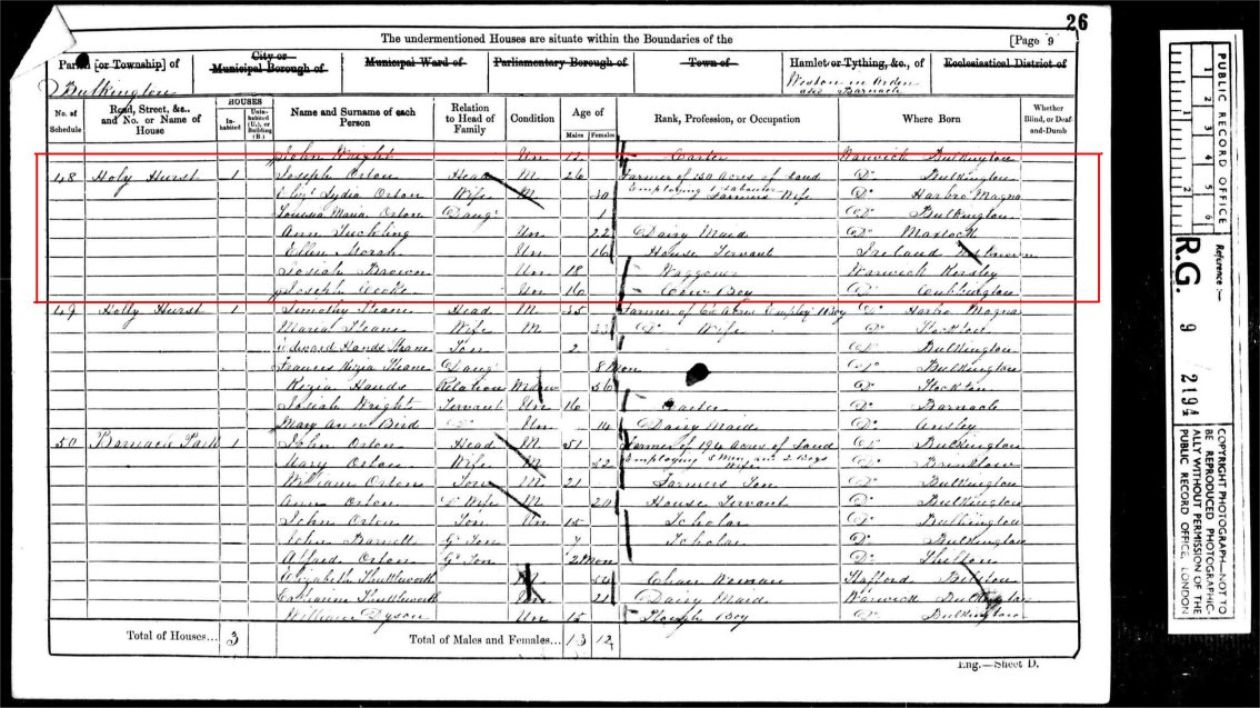 26
The undermentioned Houses are situate within the Boundaries of the
[Page 9
Parish [or Township] of
City or Municipal Borough of
Municipal Ward of
Parliamentary Borough of
Town of
Hamlet or Tything, &c., of
Ecclesiastical District of
Bulkington
Weston in Arden
and Barnacle
No. of Schedule
Road, Street, &c., and No. or Name of House
HOUSES
In-habited
Unin-habited (U.), or Building (B.)
Name and Surname of each Person
Relation to Head of Family
Condition
Age of
Males
Females
Rank, Profession, or Occupation
Where Born
Whether Blind, or Deaf-and-Dumb
John Wright Un 12 Carter Warwick Bulkington
48 Holy Hurst 1 Joseph Orton Head M 26 Farmer of 130 Acres of Land Do Bulkington
Employing 1 Labourer
Lydia Orton Wife M 30 Farmers Wife Do Harbro Magna
Louisa Maria Orton Daug 1 Do Bulkington
Ann Un 22 Dairy Maid Do Maxtock
Ellen Un 16 House Servant Ireland
Josiah Brown Un 18 Waggoner Warwick Kersley
Joseph Cooke Un 16 Cow Boy Do Cubbington
49 Holly Hurst 1 Timothy Head M 35 Farmer of Acres Employ 1 Boy Do Harbro Magna
Maria Wife M 33 Do Wife Do Stockton
Edward Hands Son 2 Do Bulkington
Frances Kezia Daug 8 Mon Do Bulkington
Kezia Hands Relation Widow 56 Do Stockton
Josiah Wright Servant Un 16 Carter Do Barnacle
Mary Ann Bird Do Un 14 Dairy Maid Do Ansley
50 Barnacle Park 1 John Orton Head M 51 Farmer of 194 Acres of Land Do Bulkington
Employing 3 Men and 2 Boys
Mary Orton Wife M 52 Wife Do Brinklow
William Orton Son M 21 Farmers Son Do Bulkington
Ann Orton Do Wife M 20 House Servant Do Bulkington
John Orton Son Un 15 Scholar Do Bulkington
John Barnett G Son 7 Scholar Do Bulkington
Alfred Orton G Son 2 Mon Do Shilton
Elizabeth Shuttleworth 54 Chair Woman Stafford Bilston
Catharine Shuttleworth Un 21 Dairy Maid Warwick Bulkington
William Dyson Un 15 Plough Boy Do Bulkington
Total of Houses... 3
Total of Males and Females... 13 12
Eng.—Sheet D.
PUBLIC RECORD OFFICE
1 2 3 4 5 6
Reference :-
R.G. 9 2194
COPYRIGHT PHOTOGRAPH—NOT TO BE REPRODUCED PHOTOGRAPHICALLY WITHOUT PERMISSION OF THE PUBLIC RECORD OFFICE, LONDON